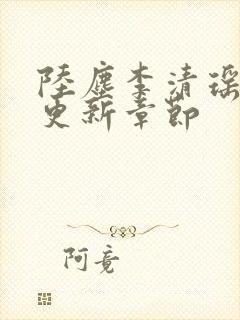 陸塵李清瑤
更新章節
阿竟